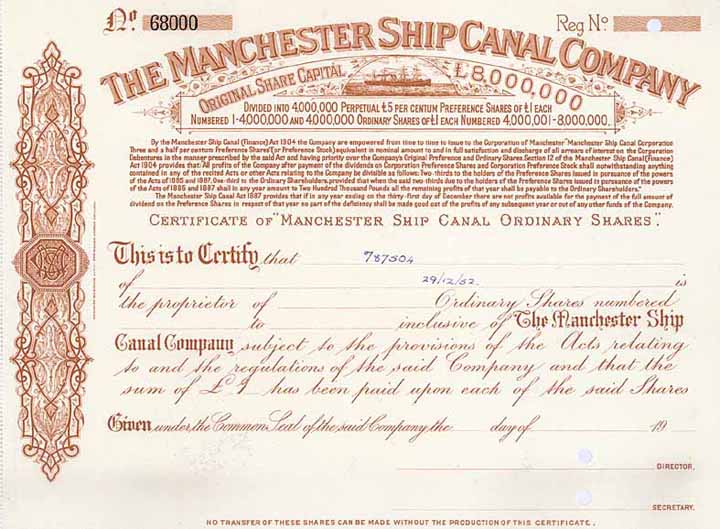 No. 68000 Reg No.
THE MANCHESTER SHIP CANAL COMPANY
ORIGINAL SHARE CAPITAL £8,000,000
DIVIDED INTO 4,000,000 PERPETUAL £5 PER CENTUM PREFERENCE SHARES OF £1 EACH
NUMBERED 1-4,000,000 AND 4,000,000 ORDINARY SHARES OF £1 EACH NUMBERED 4,000,001-8,000,000.
By the Manchester Ship Canal (Finance) Act 1904 the Company are empowered from time to time to issue to the Corporation of Manchester "Manchester Ship Canal Corporation
Three and a half per cent Preference Shares" (or Preference Stock) equivalent in nominal amount to and in full satisfaction and discharge of all arrears of interest on the Corporation
Debentures in the manner prescribed by the said Act and having priority over the Company's Original Preference and Ordinary Shares. Section 12 of the Manchester Ship Canal (Finance)
Act 1904 provides that: All profits of the Company after payment of the dividends on Corporation Preference Shares and Corporation Preference Stock shall notwithstanding anything
contained in any of the recited Acts or other Acts relating to the Company be divisible as follows: Two-thirds to the holders of the Preference Shares issued in pursuance of the powers
of the Acts of 1885 and 1887. One-third to the Ordinary Shareholders, provided that when the said two-thirds due to the holders of the Preference Shares issued in pursuance of the powers
of the Acts of 1885 and 1887 shall in any year amount to Two Hundred Thousand Pounds all the remaining profits of that year shall be payable to the Ordinary Shareholders."
The Manchester Ship Canal Act 1887 provides that if in any year ending on the thirty-first day of December there are not profits available for the payment of the full amount of
dividend on the Preference Shares in respect of that year no part of the deficiency shall be made good out of the profits of any subsequent year or out of any other funds of the Company.
CERTIFICATE OF "MANCHESTER SHIP CANAL ORDINARY SHARES".
This is to Certify that 787504
of 29/12/52. is
the proprietor of Ordinary Shares numbered
to inclusive of The Manchester Ship
Canal Company subject to the provisions of the Acts relating
to and the regulations of the said Company and that the
sum of £1 has been paid upon each of the said Shares
Given under the Common Seal of the said Company the day of 19
DIRECTOR.
SECRETARY.
NO TRANSFER OF THESE SHARES CAN BE MADE WITHOUT THE PRODUCTION OF THIS CERTIFICATE.